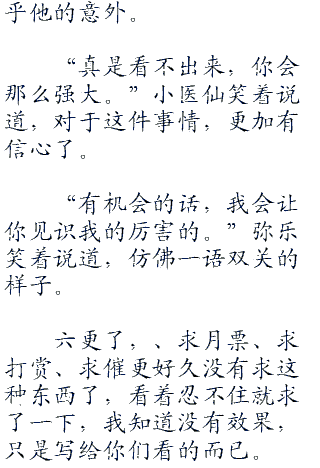 乎他的意外。
“真是看不出来，你会
那么强大。”小医仙笑着说
道，对于这件事情，更加有
信心了。
“有机会的话，我会让
你见识我的厉害的。”弥乐
笑着说道，仿佛一语双关的
样子。
六更了，、求月票、求
打赏、求催更好久没有求这
种东西了，看着忍不住就求
了一下，我知道没有效果，
只是写给你们看的而已。